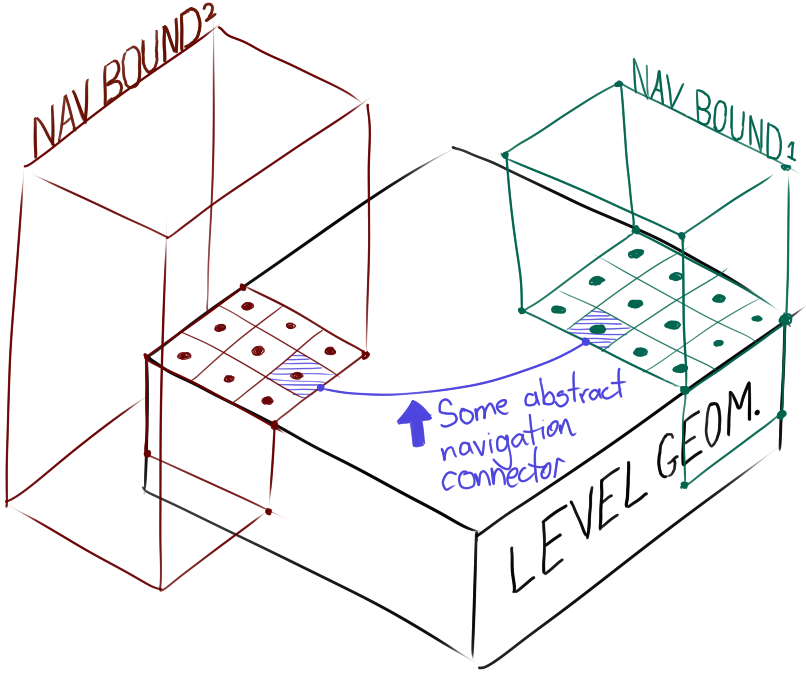 NAV BOUND²
NAV BOUND₁
Some abstract
navigation
connector
LEVEL GEOM.